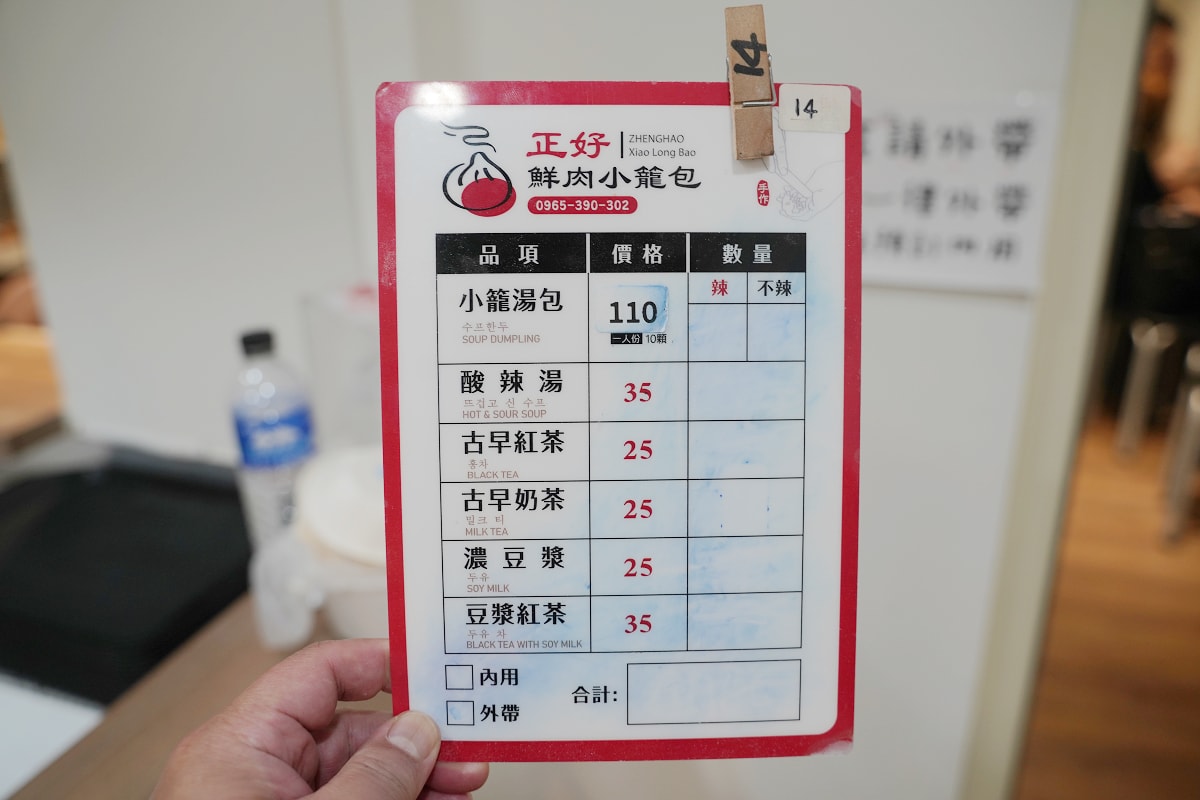 14
14
正好 ZHENGHAO
Xiao Long Bao
鮮肉小籠包
0965-390-302
手作
品項 價格 數量
辣 不辣
小籠湯包
수프한두
SOUP DUMPLING
110
一人份 10顆
酸辣湯
뜨겁고 신 수프
HOT & SOUR SOUP
35
古早紅茶
홍차
BLACK TEA
25
古早奶茶
밀크 티
MILK TEA
25
濃豆漿
두유
SOY MILK
25
豆漿紅茶
두유 차
BLACK TEA WITH SOY MILK
35
內用
外帶
合計: